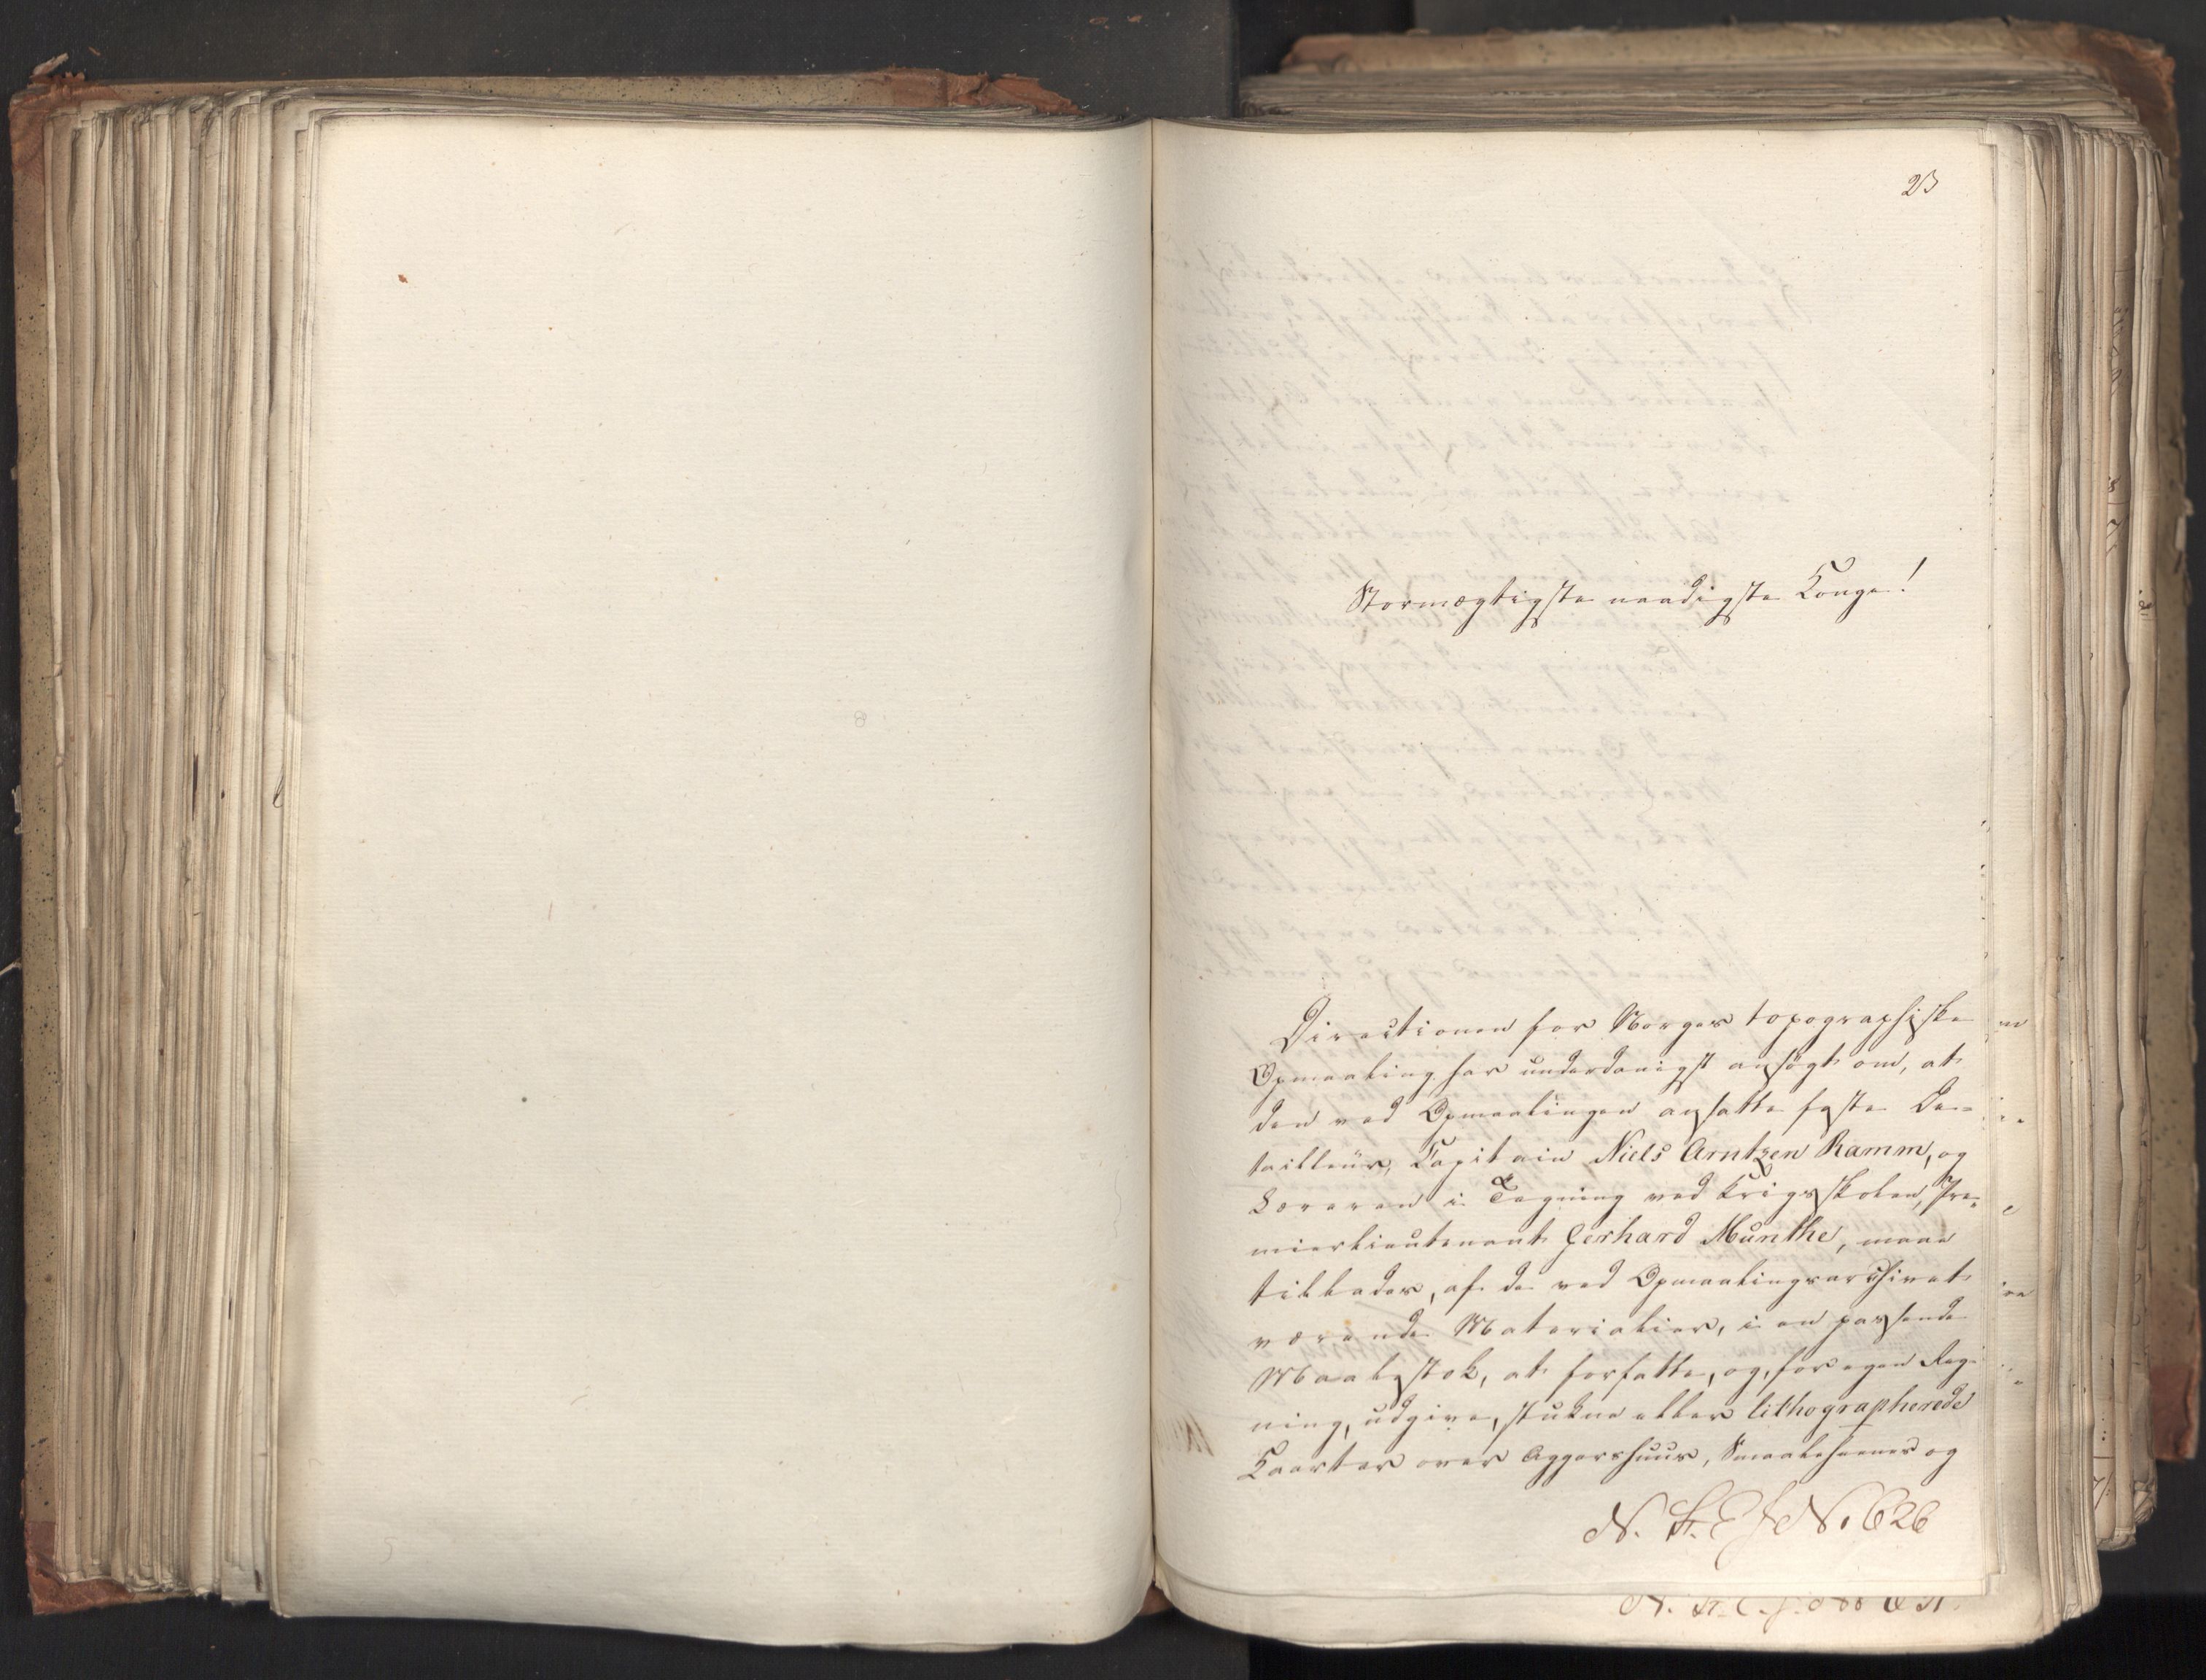 23
Stormægtigste naadigste Konge!
Directionen for Norges topographiske
Opmaaling har underdanigst ansögt om, at
den ved Opmaalingen ansatte faste De-
tailleur, Capitain Niels Arntzen Ramm, og
Læreren i Tegning ved Krigsskolen, Pre-
mierlieutenant Gerhard Munthe, maae
tillades, af de ved Opmaalingsarchivet
værende Materialier, i en passende
Maalestok, at forfatte, og, for egen Reg-
ning, udgive, stukne eller lithographerede
Kaarter over Aggershuus, Smaalehnenes og
N. St. E. J. No. 626